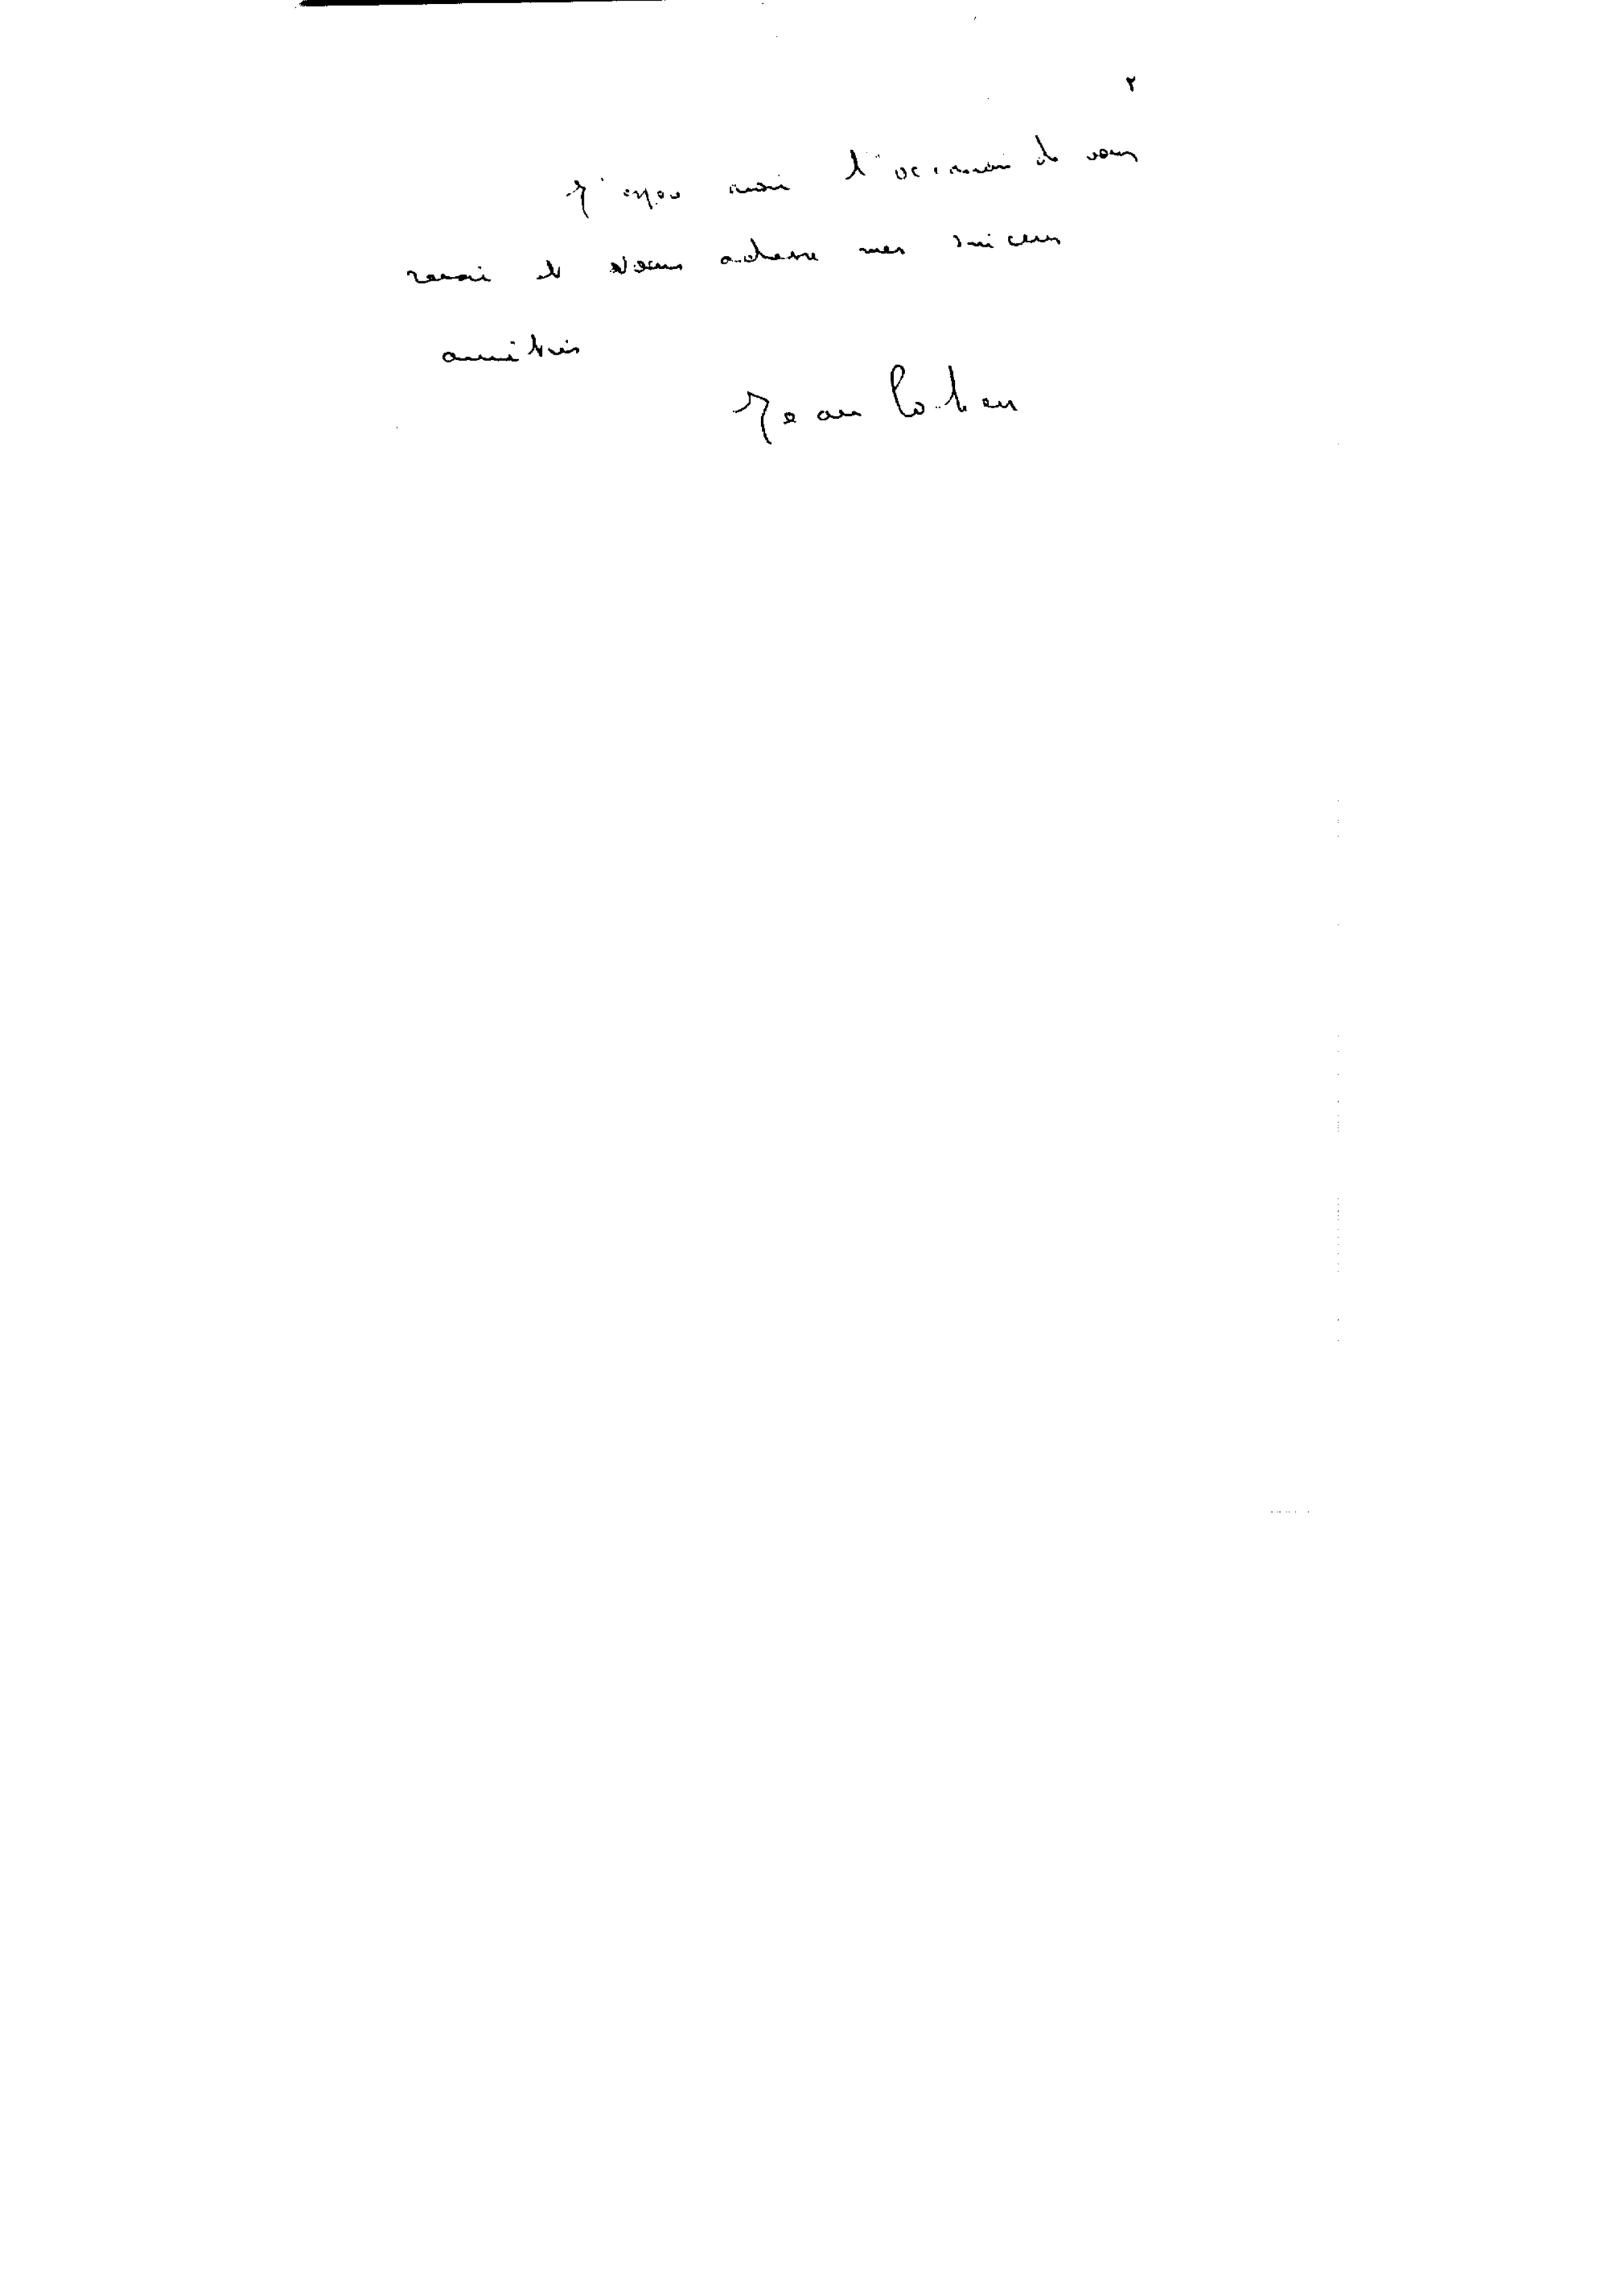 ٢
J'espère avoir l'occasion de vous
revoir et vous adresse mes sincères
amitiés
Jean Cohen